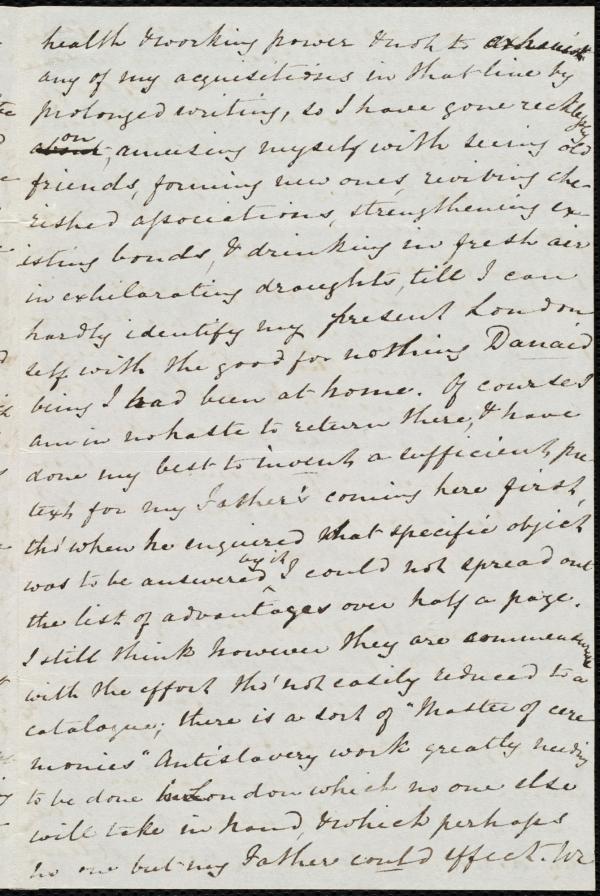 health & working power & not to exhaust
any of my acquisitions in that line by
prolonged writing, so I have gone recklessly
on, amusing myself with seeing old
friends, forming new ones, reviving che-
rished associations, strengthening ex-
isting bonds, & drinking in fresh air
in exhilarating draughts, till I can
hardly identify my present London
self with the good for nothing Danaid
being I had been at home. Of course I
am in no haste to return there, & have
done my best to invent a sufficient pre
text for my Father's coming here first,
tho' when he enquired what specific object
was to be answered by it I could not spread out
the list of advantages over half a page.
I still think however they are commensurate
with the effort tho' not easily reduced to a
catalogue; there is a sort of "Master of cere
monies" Antislavery work greatly needing
to be done in London which no one else
will take in hand, & which perhaps
no one but my Father could effect. We